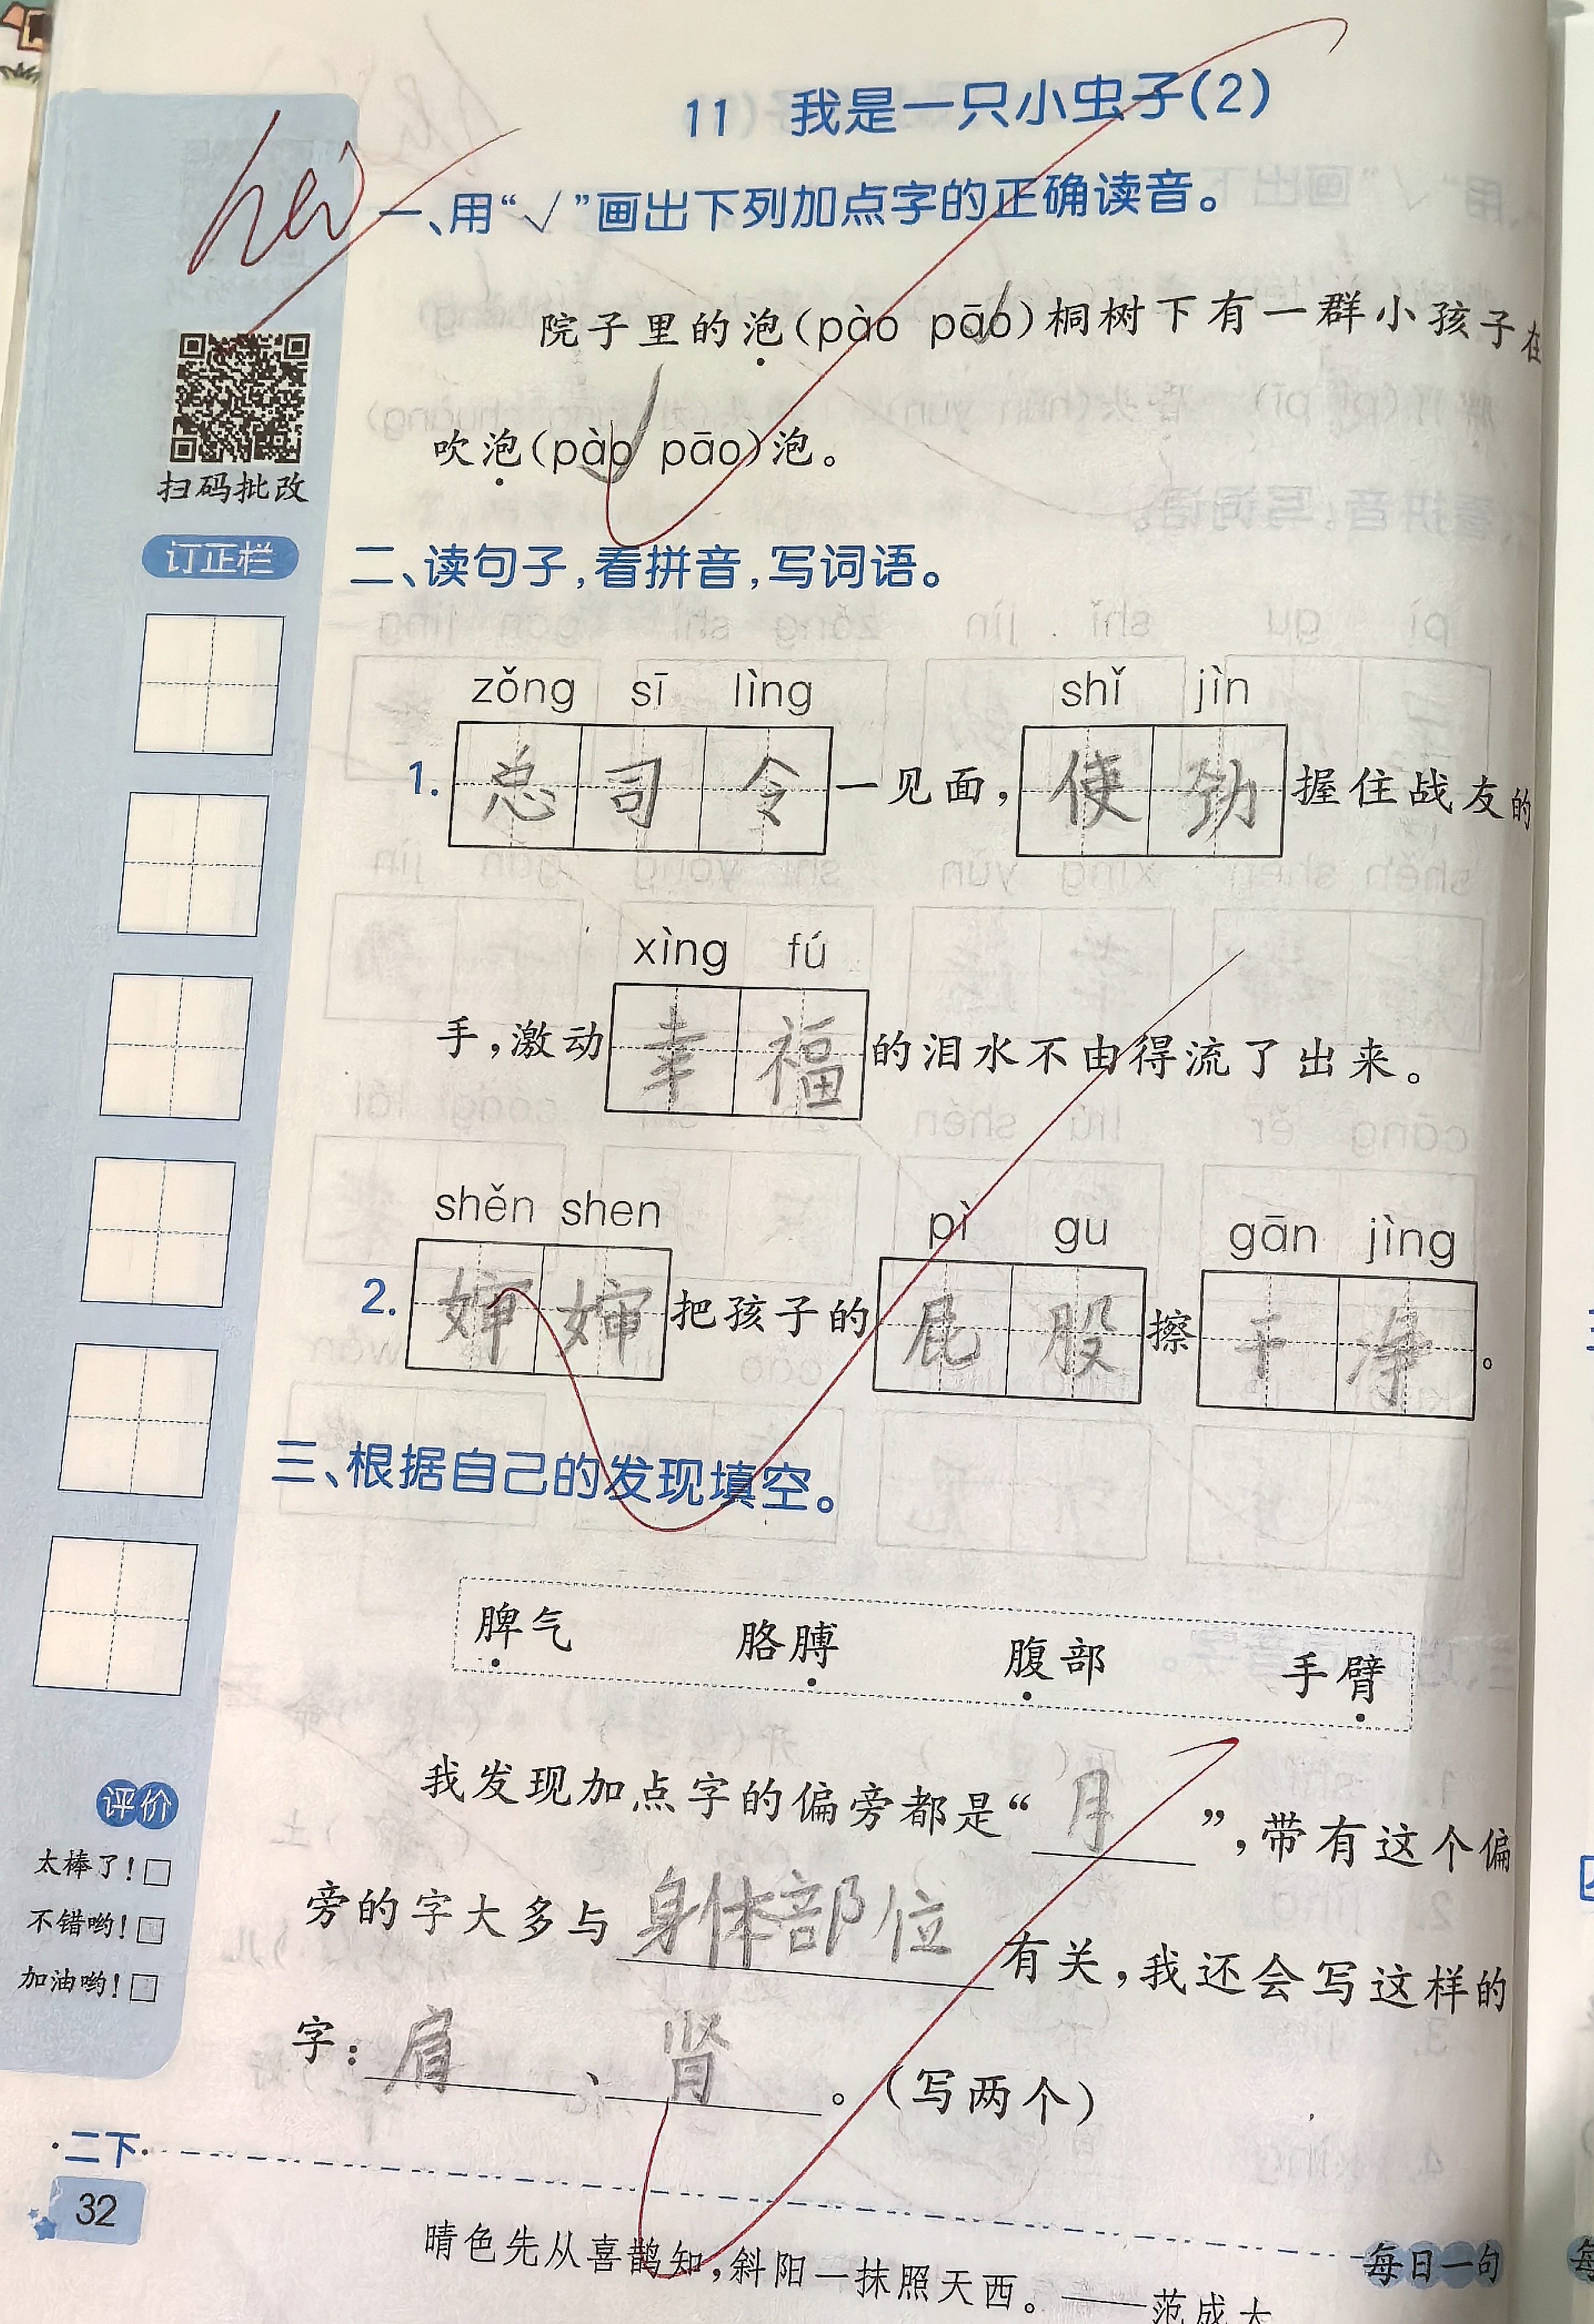 11 我是一只小虫子(2)
一、用“√”画出下列加点字的正确读音。
院子里的泡(pào pāo)桐树下有一群小孩子在
吹泡(pào pāo)泡。
扫码批改
订正栏
二、读句子,看拼音,写词语。
zǒng sī lìng shǐ jìn
1. 总司令一见面,使劲握住战友的
xìng fú
手,激动幸福的泪水不由得流了出来。
shěn shen pì gu gān jìng
2. 婶婶把孩子的屁股擦干净。
三、根据自己的发现填空。
脾气 胳膊 腹部 手臂
我发现加点字的偏旁都是“月”,带有这个偏
旁的字大多与身体部位有关,我还会写这样的
字:肩、肾。(写两个)
评价
太棒了!□
不错哟!□
加油哟!□
·二下·
32
晴色先从喜鹊知,斜阳一抹照天西。——范成大
每日一句